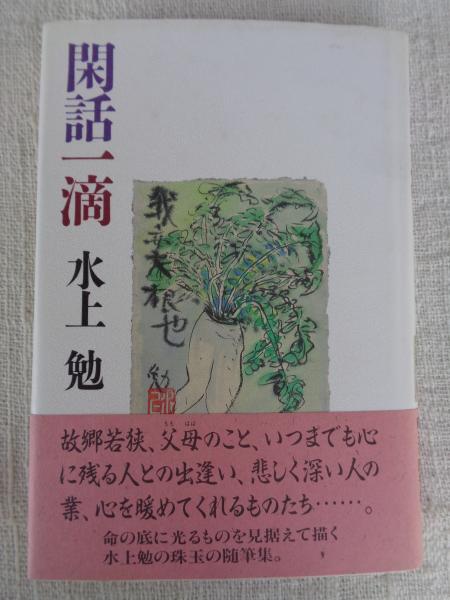 閑話一滴
水上 勉
我亦大根也
勉
故郷若狭、父母のこと、いつまでも心
に残る人との出逢い、悲しく深い人の
業、心を暖めてくれるものたち……。
命の底に光るものを見据えて描く
水上勉の珠玉の随筆集。